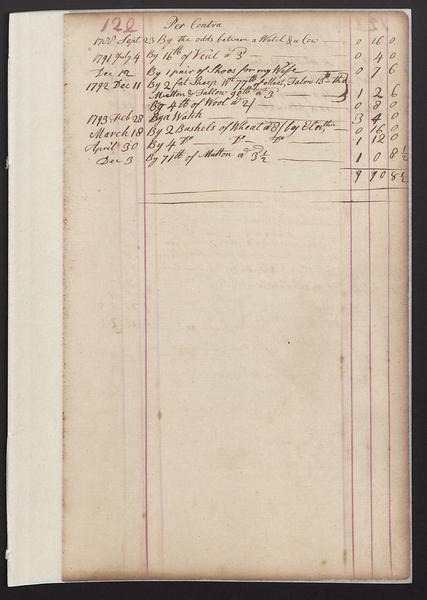 122
Per Contra
Sept 23 By the odds between a Watch & a Cow 0 16 0
1791 July 4 By 16 lb of Veal a 3 0 4 0
Dec 12 By 1 pair of Shoes for my Wife 0 7 6
1792 Dec 11 By 2 fat Sheep 77 lb of Meat, Talow 13 lb
Mutton & Tallow 90 lb a 3 1 2 6
By 4 lb of Wool a 2/ 0 8 0
1793 Feb 28 By a Watch 3 4 0
March 18 By 2 Bushels of Wheat a 8/ by 0 16 0
April 30 By 4 Do Do Do 1 12 0
Dec 3 By 71 lb of Mutton a 3 1/2 1 0 8 1/2
9 9 0 8 1/2